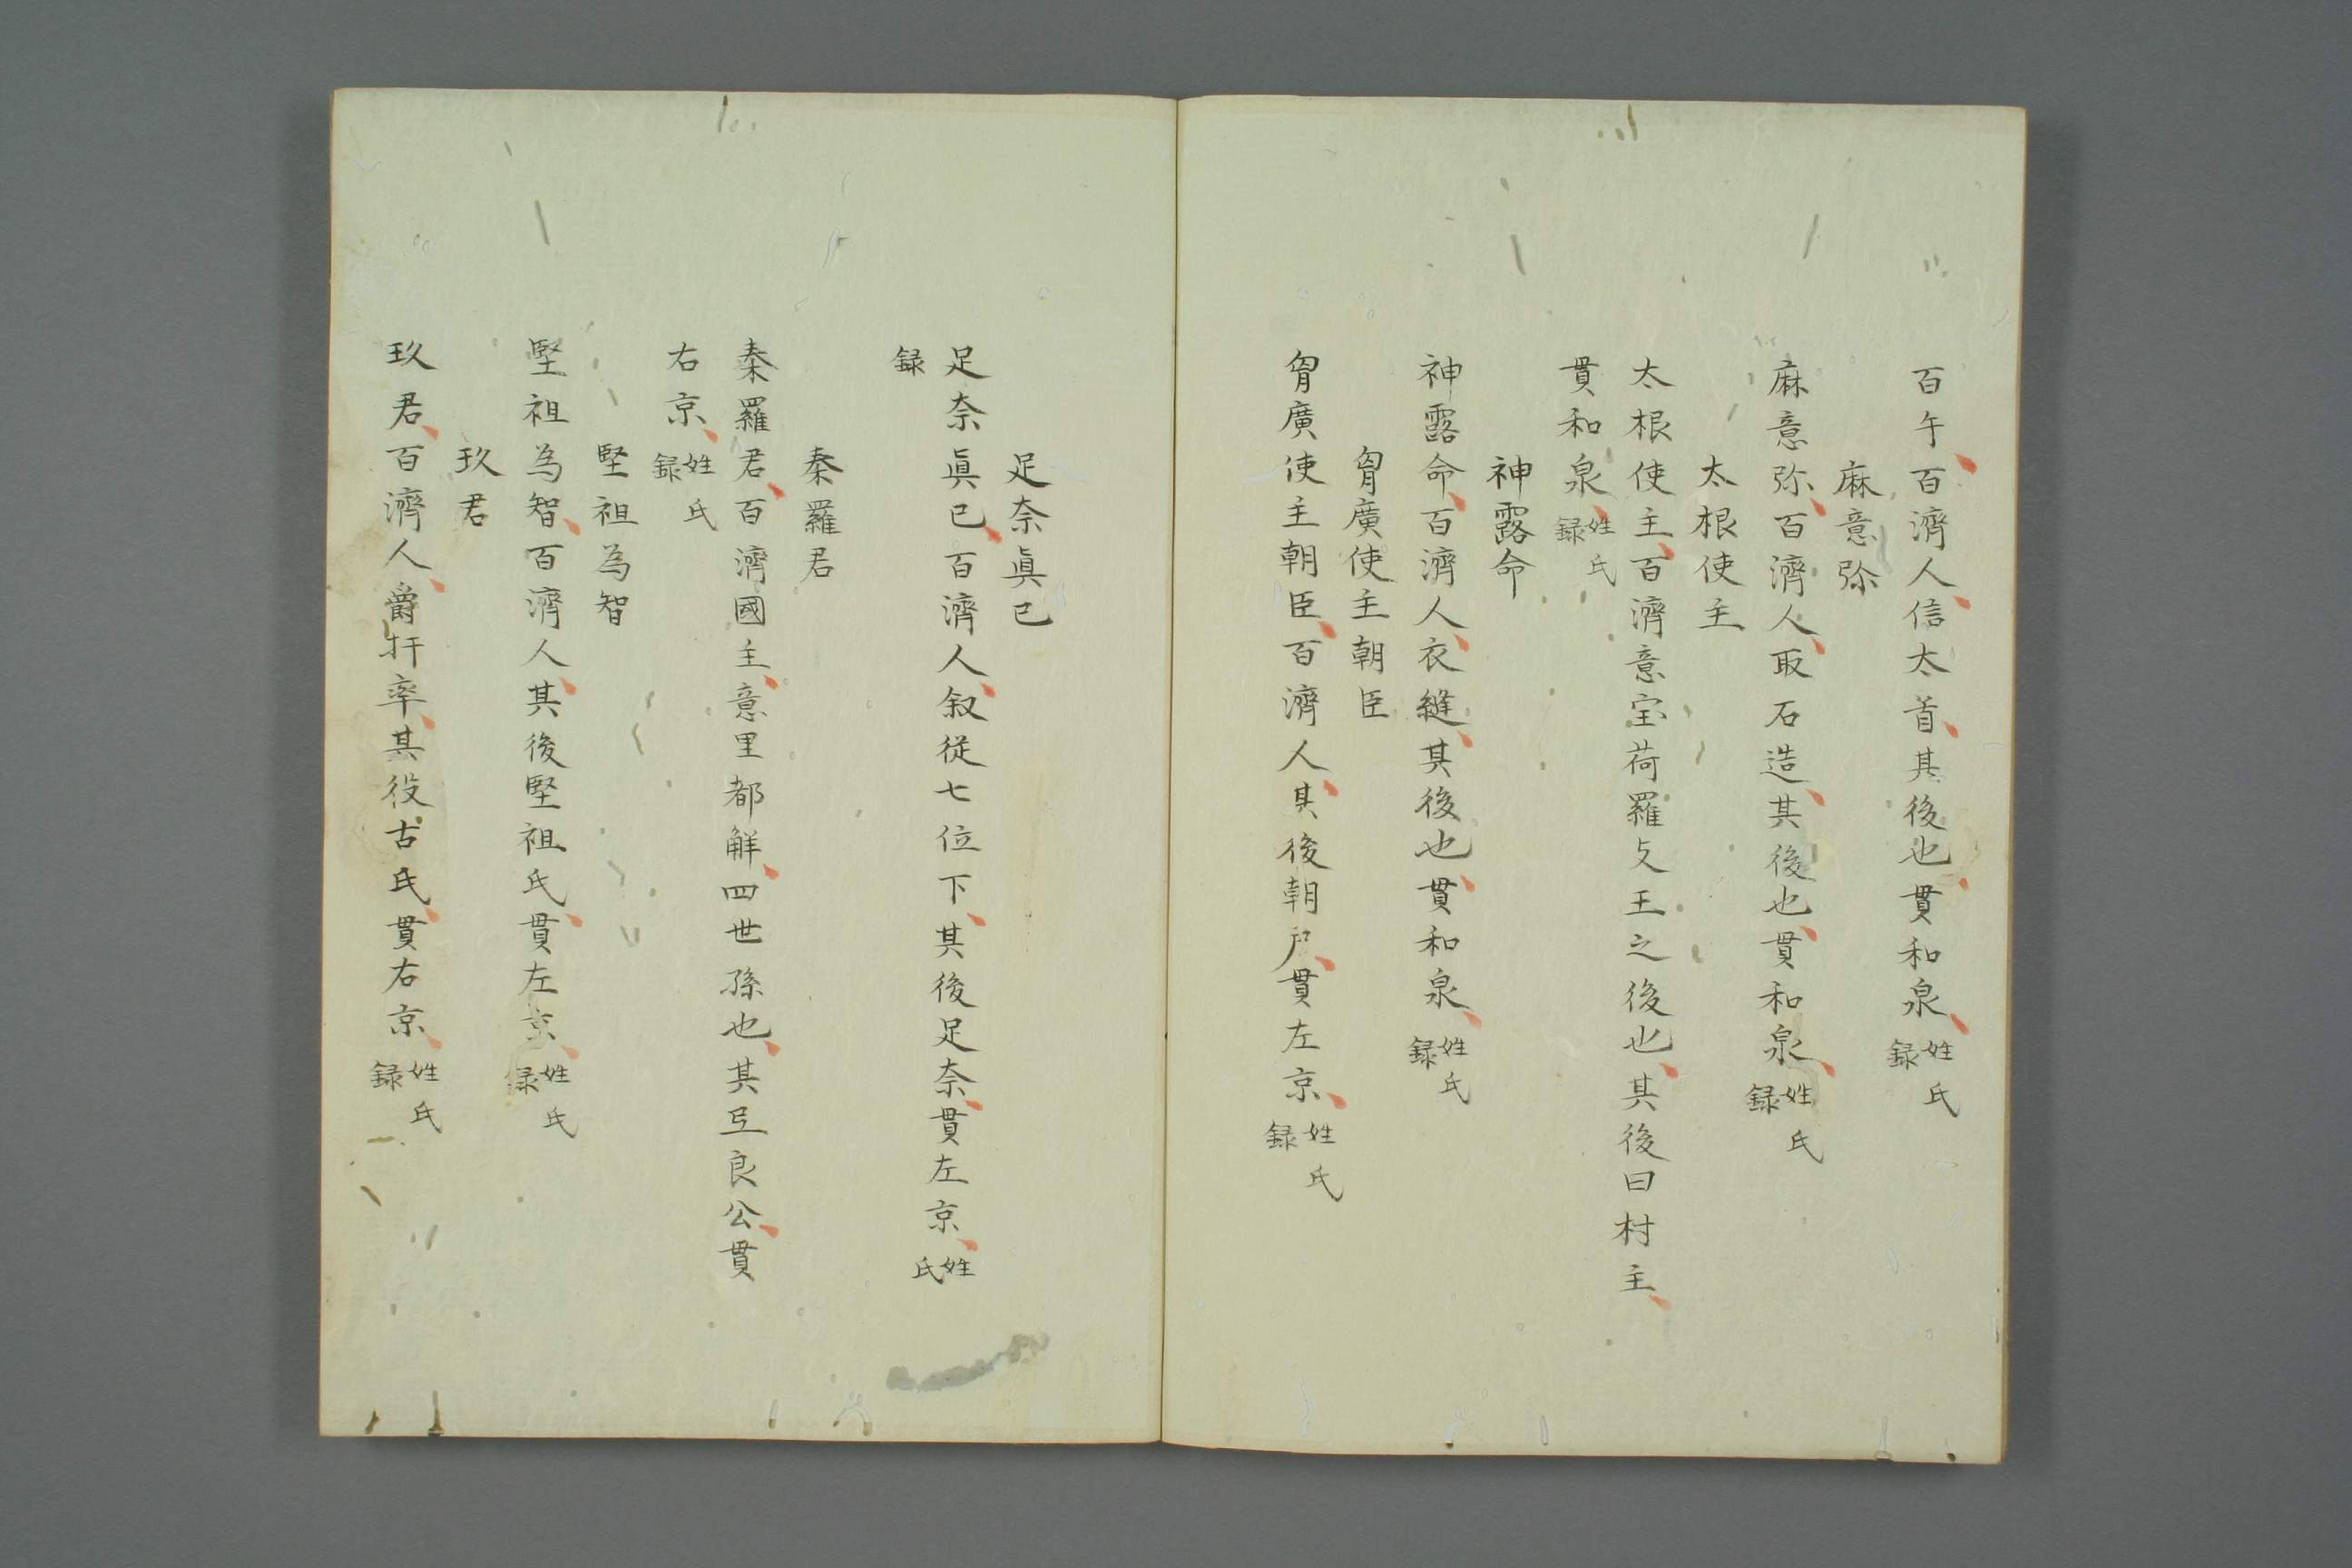 百午百濟人信太首其後也貫和泉姓氏録
麻意弥
麻意弥百濟人取石造其後也貫和泉姓氏録
太根使主
太根使主百濟意宝荷羅攴王之後也其後曰村主
貫和泉姓氏録
神露命
神露命百濟人衣縫其後也貫和泉姓氏録
胷廣使主朝臣
胷廣使主朝臣百濟人其後朝戶貫左京姓氏録
足奈眞已
足奈眞已百濟人叙従七位下其後足奈貫左京姓氏
録
秦羅君
秦羅君百濟國主意里都解四世孫也其良公貫
右京姓氏録
堅祖為智
堅祖為智百濟人其後堅祖氏貫左京姓氏録
玖君
玖君百濟人爵扞率其役古氏貫右京姓氏録